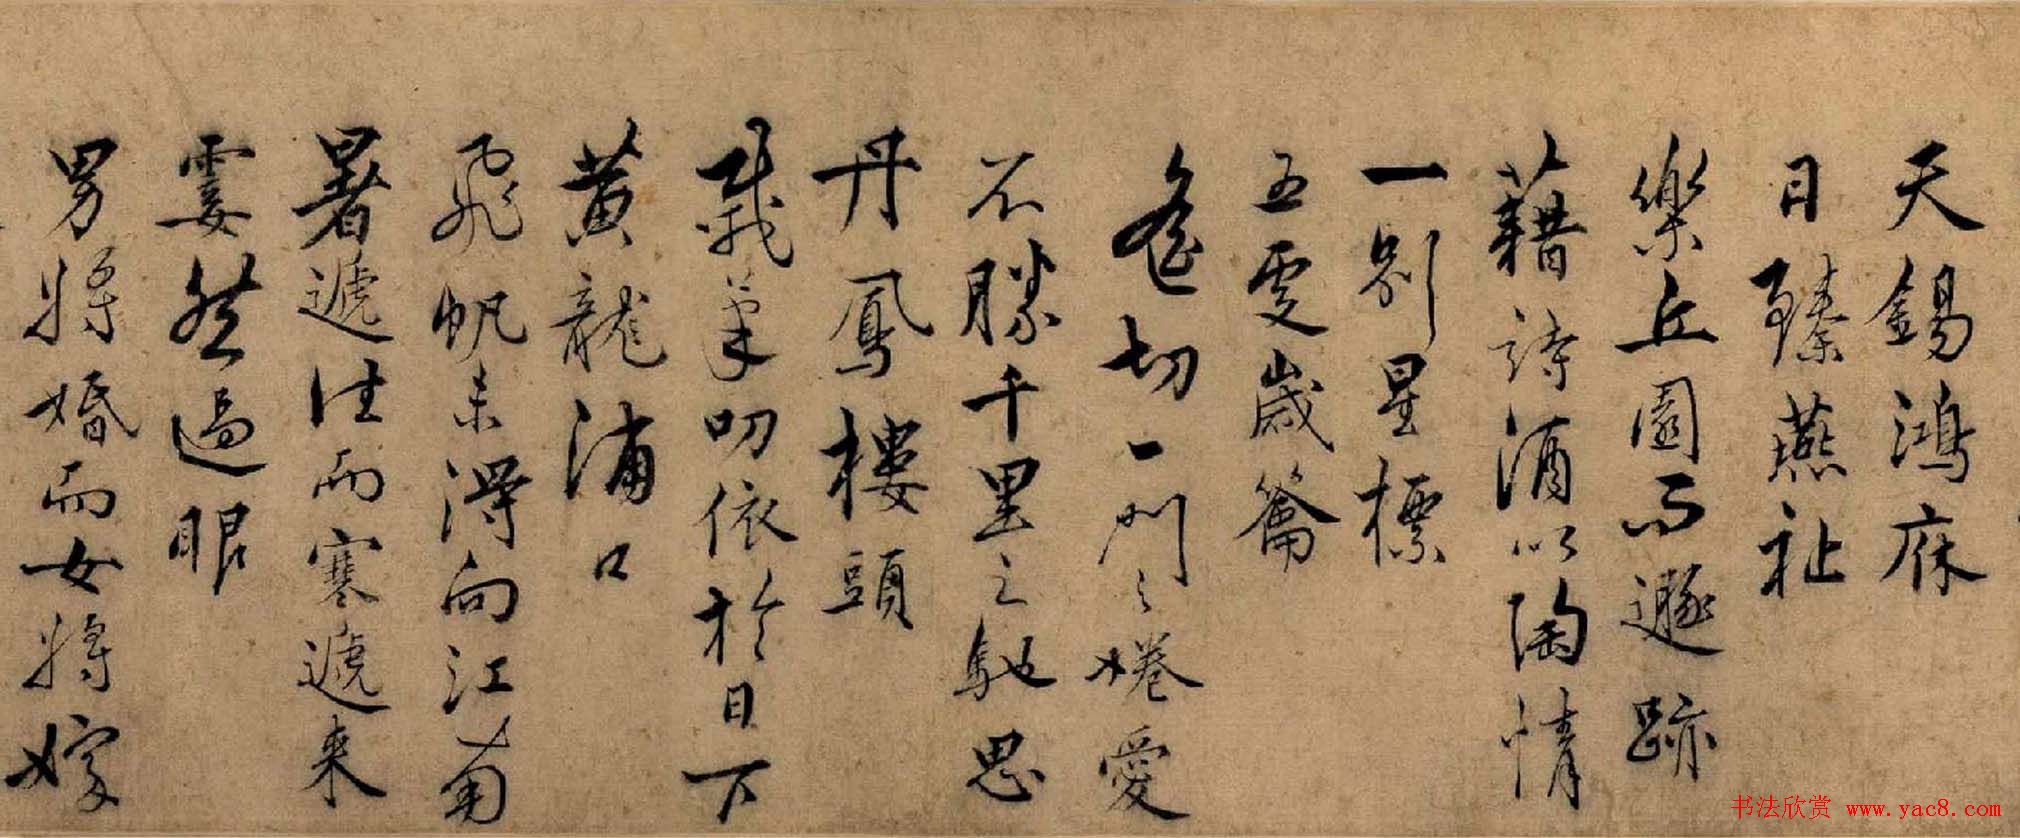 天錫鴻庥
日臻燕祉
樂丘園而遯跡
藉詩酒以陶情
一別星標
五更歲籥
切一門之惓愛
不勝千里之馳思
丹鳳樓頭
載筆叨依於日下
黃龍浦口
飛帆未得向江南
暑遞往而寒遞来
霎然過眼
男將婚而女將嫁
书法欣赏 www.yac8.com